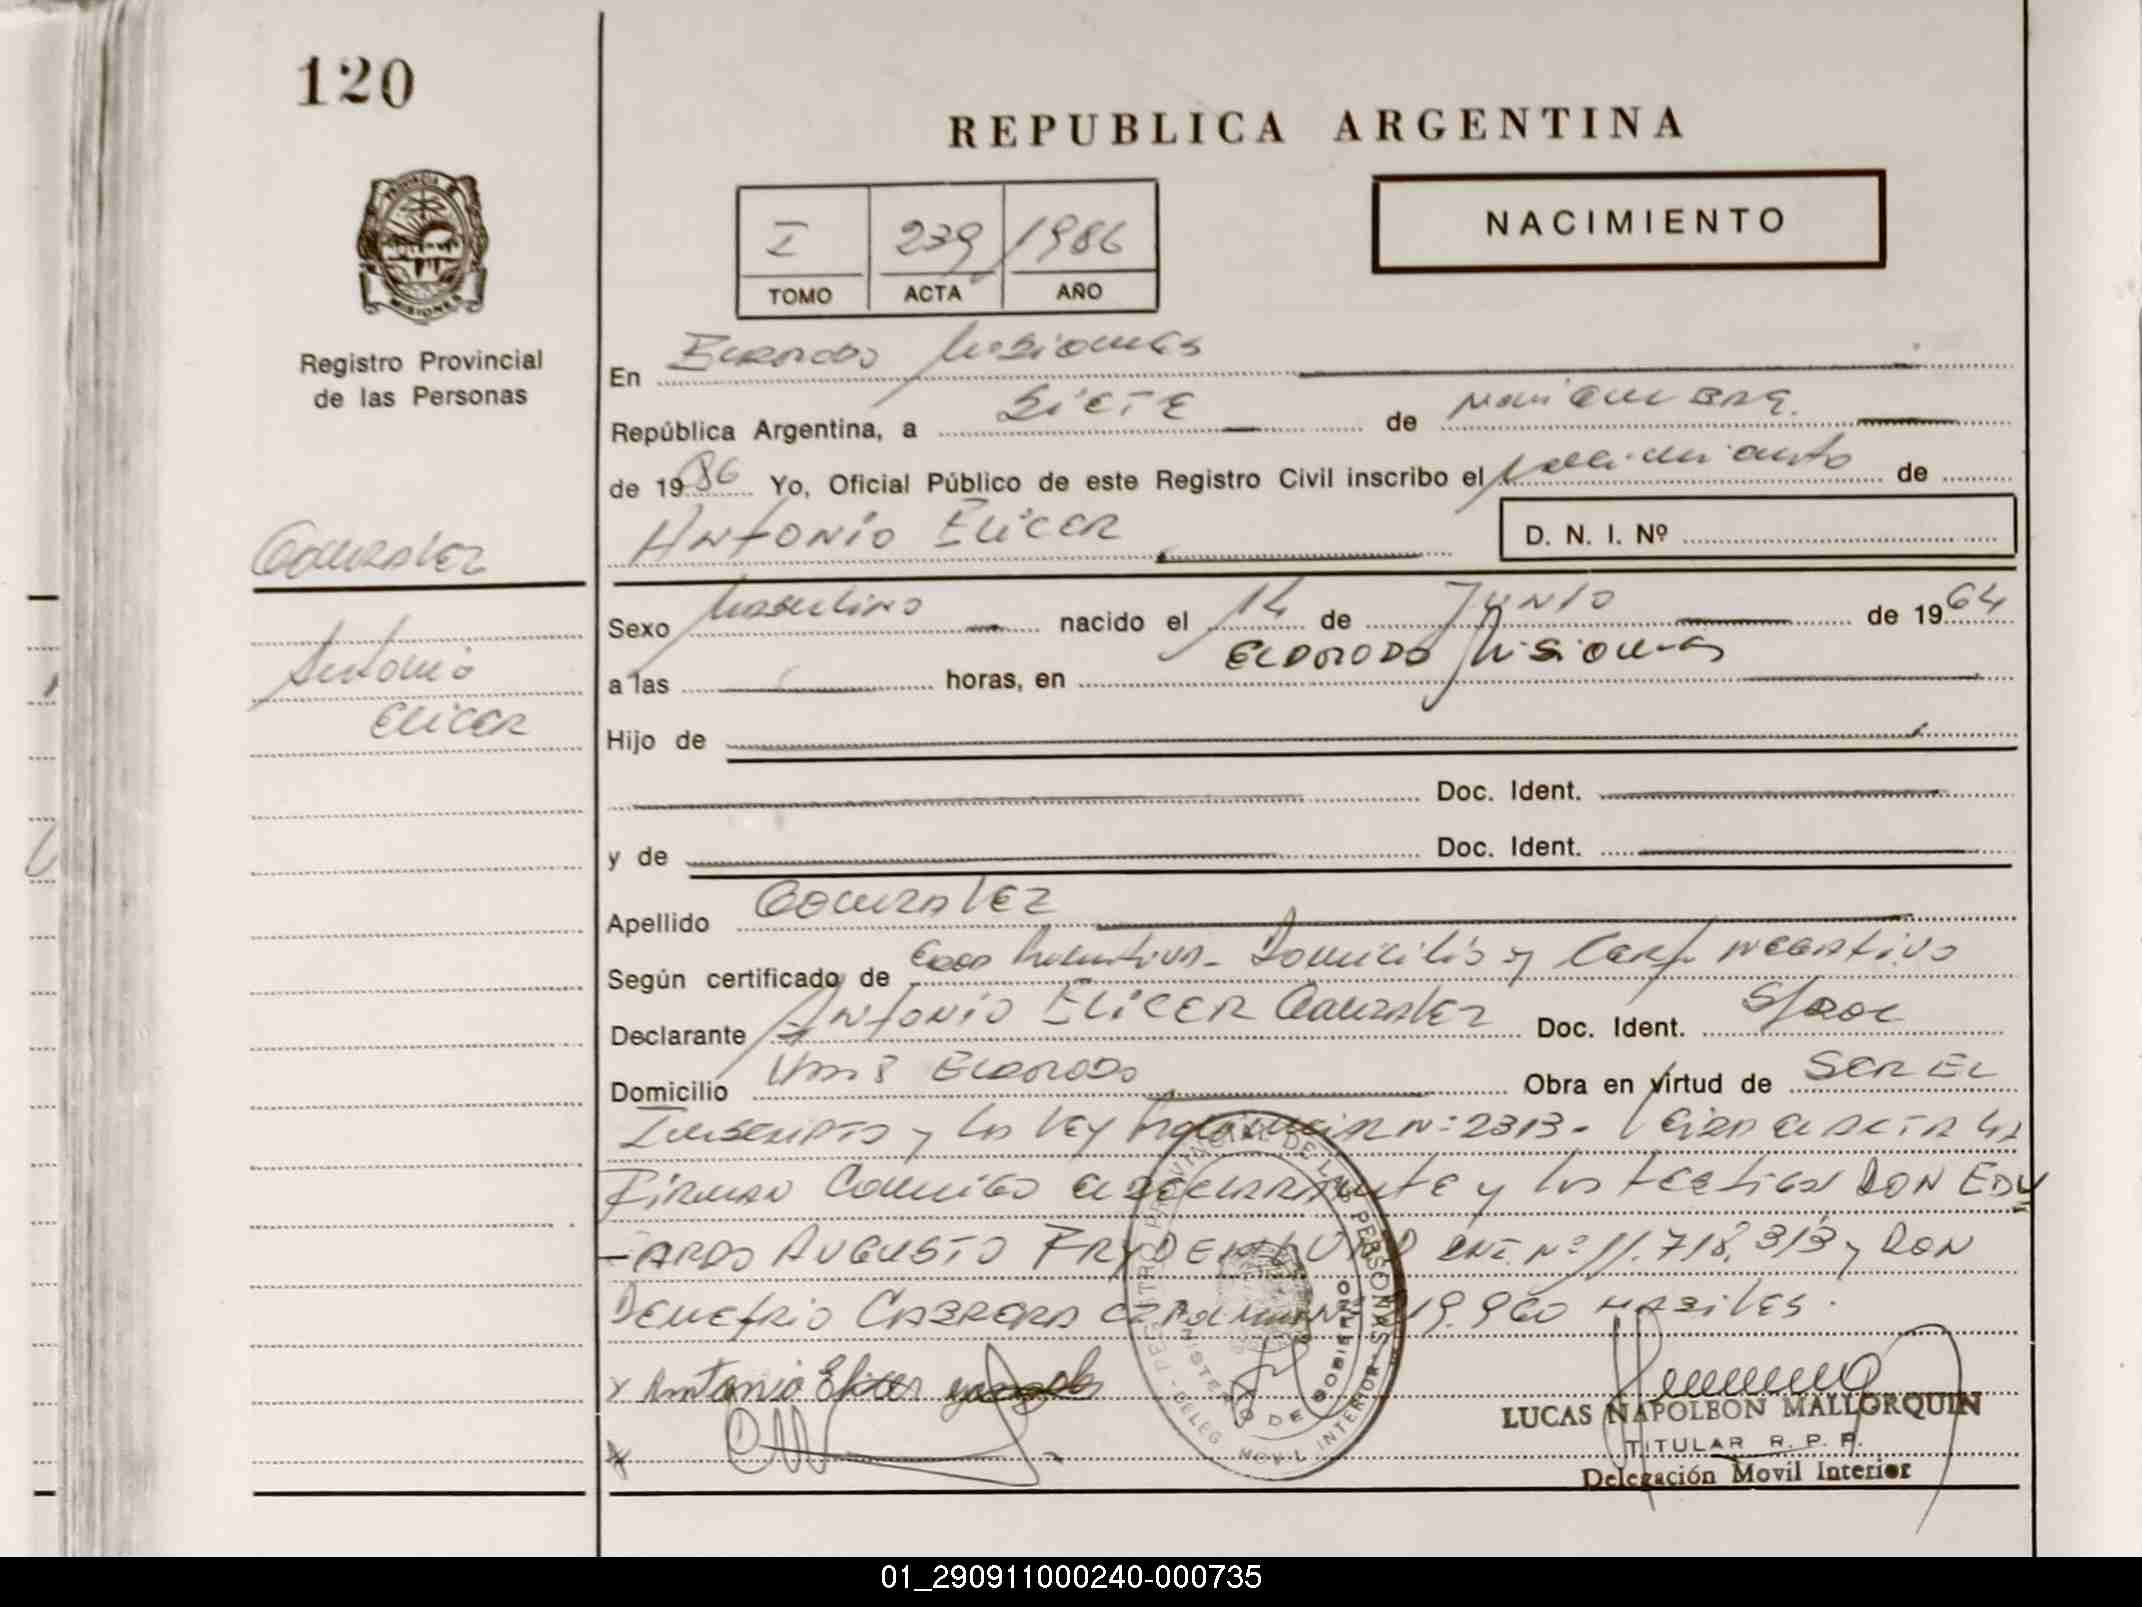 120
REPUBLICA ARGENTINA
PROVINCIA DE
MISIONES
NACIMIENTO
I 239 1986
TOMO ACTA AÑO
Registro Provincial
de las Personas
En Eldorado Misiones
República Argentina, a Siete de Noviembre
de 1986 Yo, Oficial Público de este Registro Civil inscribo el Nacimiento de
Antonio Elicer
D. N. I. Nº
Gonzalez
Antonio
Elicer
Sexo Masculino nacido el 14 de Junio de 1964
a las horas, en Eldorado Misiones
Hijo de
Doc. Ident.
y de Doc. Ident.
Apellido Gonzalez
Según certificado de Domicilio y Cert. negativo
Declarante Antonio Elicer Gonzalez Doc. Ident. S/doc
Domicilio Km 8 Eldorado Obra en virtud de Ser el
Inscripto y la Ley Provincial Nº 2313 - Leida el acta la
Firman Conmigo el declarante y los testigos Don Edu
-ardo Augusto DNI. Nº 11.718.313 y Don
Demetrio Cabrera 219.960 habiles.
x Antonio Elicer Gonzalez
REGISTRO PROVINCIAL DE LAS PERSONAS
MINISTERIO DE GOBIERNO
DELEG. MOVIL INTERIOR
LUCAS NAPOLEON MALLORQUIN
TITULAR R. P. P.
Delegación Movil Interior
01_290911000240-000735